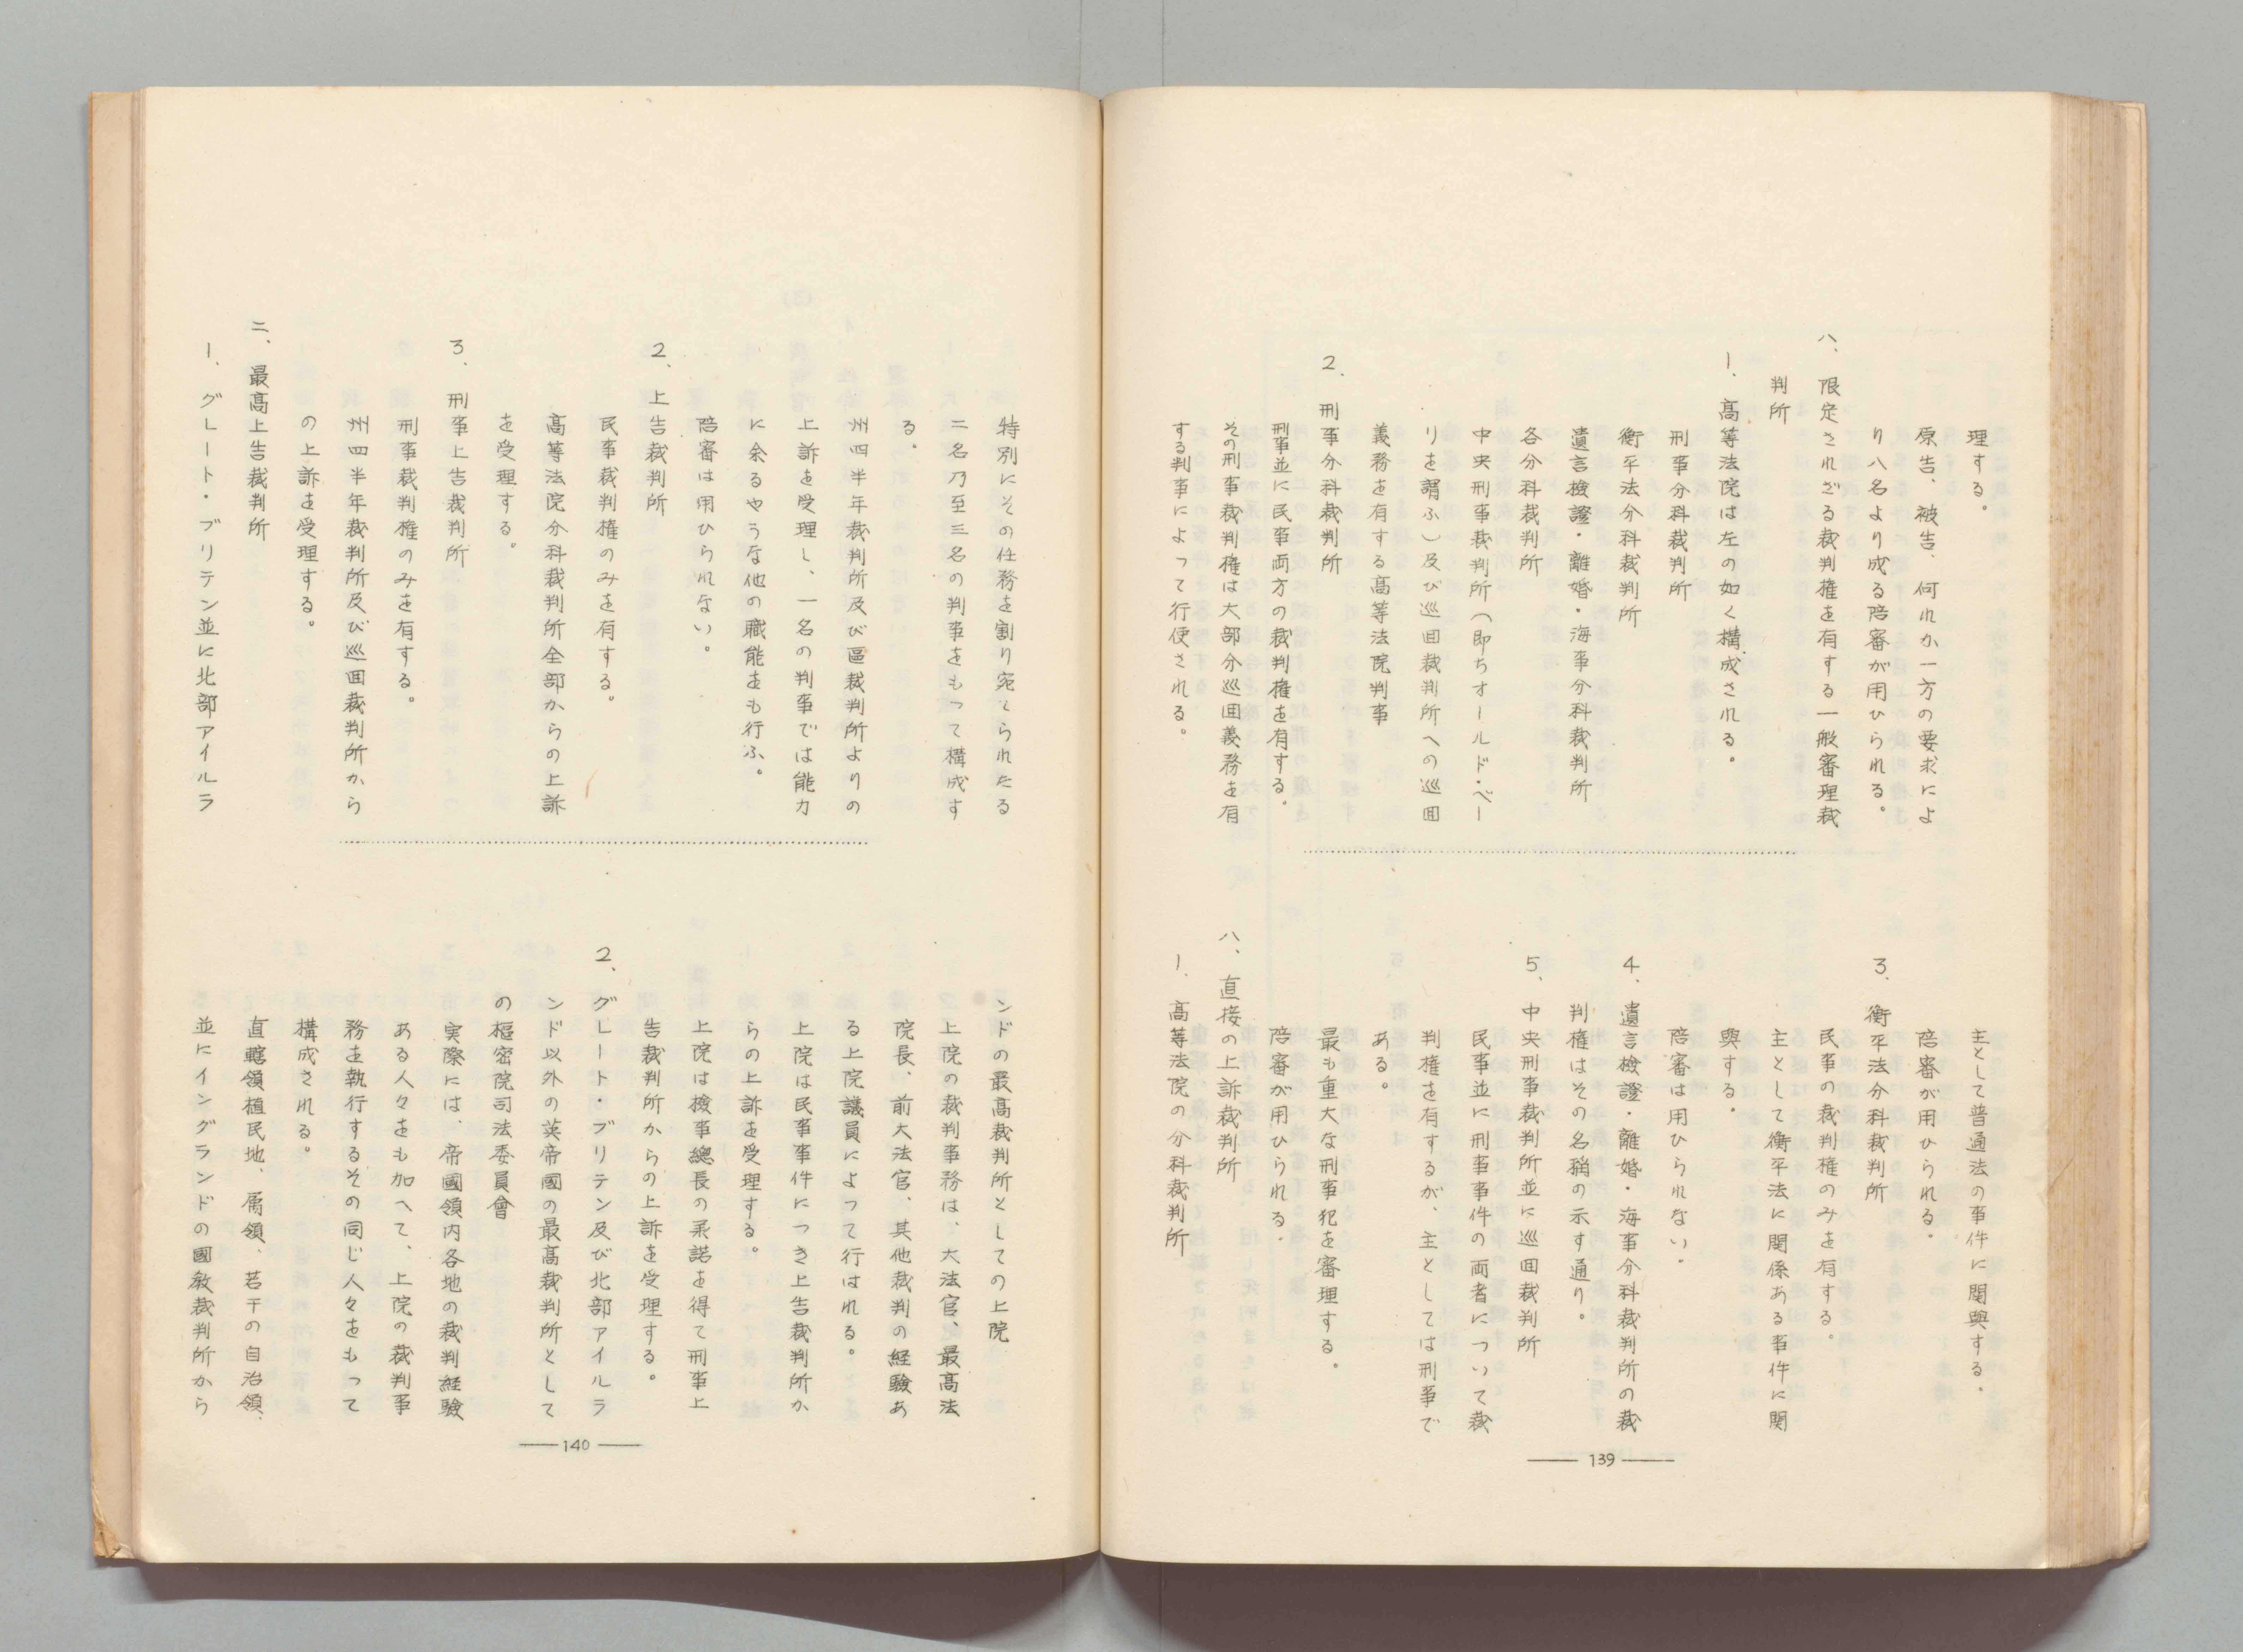 理する。
原告、被告、何れか一方の要求によ
り八名より成る陪審が用ひられる。
八、限定されざる裁判権を有する一般審理裁
判所
1、高等法院は左の如く構成される。
刑事分科裁判所
衡平法分科裁判所
遺言検證・離婚・海事分科裁判所
各分科裁判所
中央刑事裁判所(即ちオールド・ベー
リを謂ふ)及び巡囬裁判所への巡囬
義務を有する高等法院判事
2、刑事分科裁判所
刑事並に民事両方の裁判権を有する。
その刑事裁判権は大部分巡囬義務を有
する判事によって行使される。
主として普通法の事件に関與する。
陪審が用ひられる。
3、衡平法分科裁判所
民事の裁判権のみを有する。
主として衡平法に関係ある事件に関
與する。
陪審は用ひられない。
4、遺言検證・離婚・海事分科裁判所の裁
判権はその名稱の示す通り。
5、中央刑事裁判所並に巡囬裁判所
民事並に刑事事件の両者について裁
判権を有するが、主としては刑事で
ある。
最も重大な刑事犯を審理する。
陪審が用ひられる。
八、直接の上訴裁判所
1、高等法院の分科裁判所
— 139 —
特別にその仕務を割り宛てられたる
二名乃至三名の判事をもって構成す
る。
州四半年裁判所及び區裁判所よりの
上訴を受理し、一名の判事では能力
に余るやうな他の職能をも行ふ。
陪審は用ひられない。
2、上告裁判所
民事裁判権のみを有する。
高等法院分科裁判所全部からの上訴
を受理する。
3、刑事上告裁判所
刑事裁判権のみを有する。
州四半年裁判所及び巡囬裁判所から
の上訴を受理する。
二、最高上告裁判所
1、グレート・ブリテン並に北部アイルラ
ンドの最高裁判所としての上院
上院の裁判事務は、大法官、最高法
院長、前大法官、其他裁判の経験あ
る上院議員によって行はれる。
上院は民事事件につき上告裁判所か
らの上訴を受理する。
上院は検事總長の承諾を得て刑事上
告裁判所からの上訴を受理する。
2、グレート・ブリテン及び北部アイルラ
ンド以外の英帝國の最高裁判所として
の樞密院司法委員會
実際には、帝國領内各地の裁判経験
ある人々をも加へて、上院の裁判事
務を執行するその同じ人々をもって
構成される。
直轄領植民地、属領、若干の自治領、
並にイングランドの國教裁判所から
— 140 —